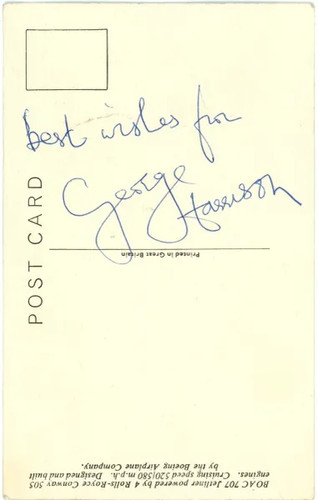 best wishes from
George
Harrison
POST CARD
Printed in Great Britain
BOAC 707 Jetliner powered by 4 Rolls-Royce Conway 505
engines. Cruising speed 520/580 m.p.h. Designed and built
by the Boeing Airplane Company.